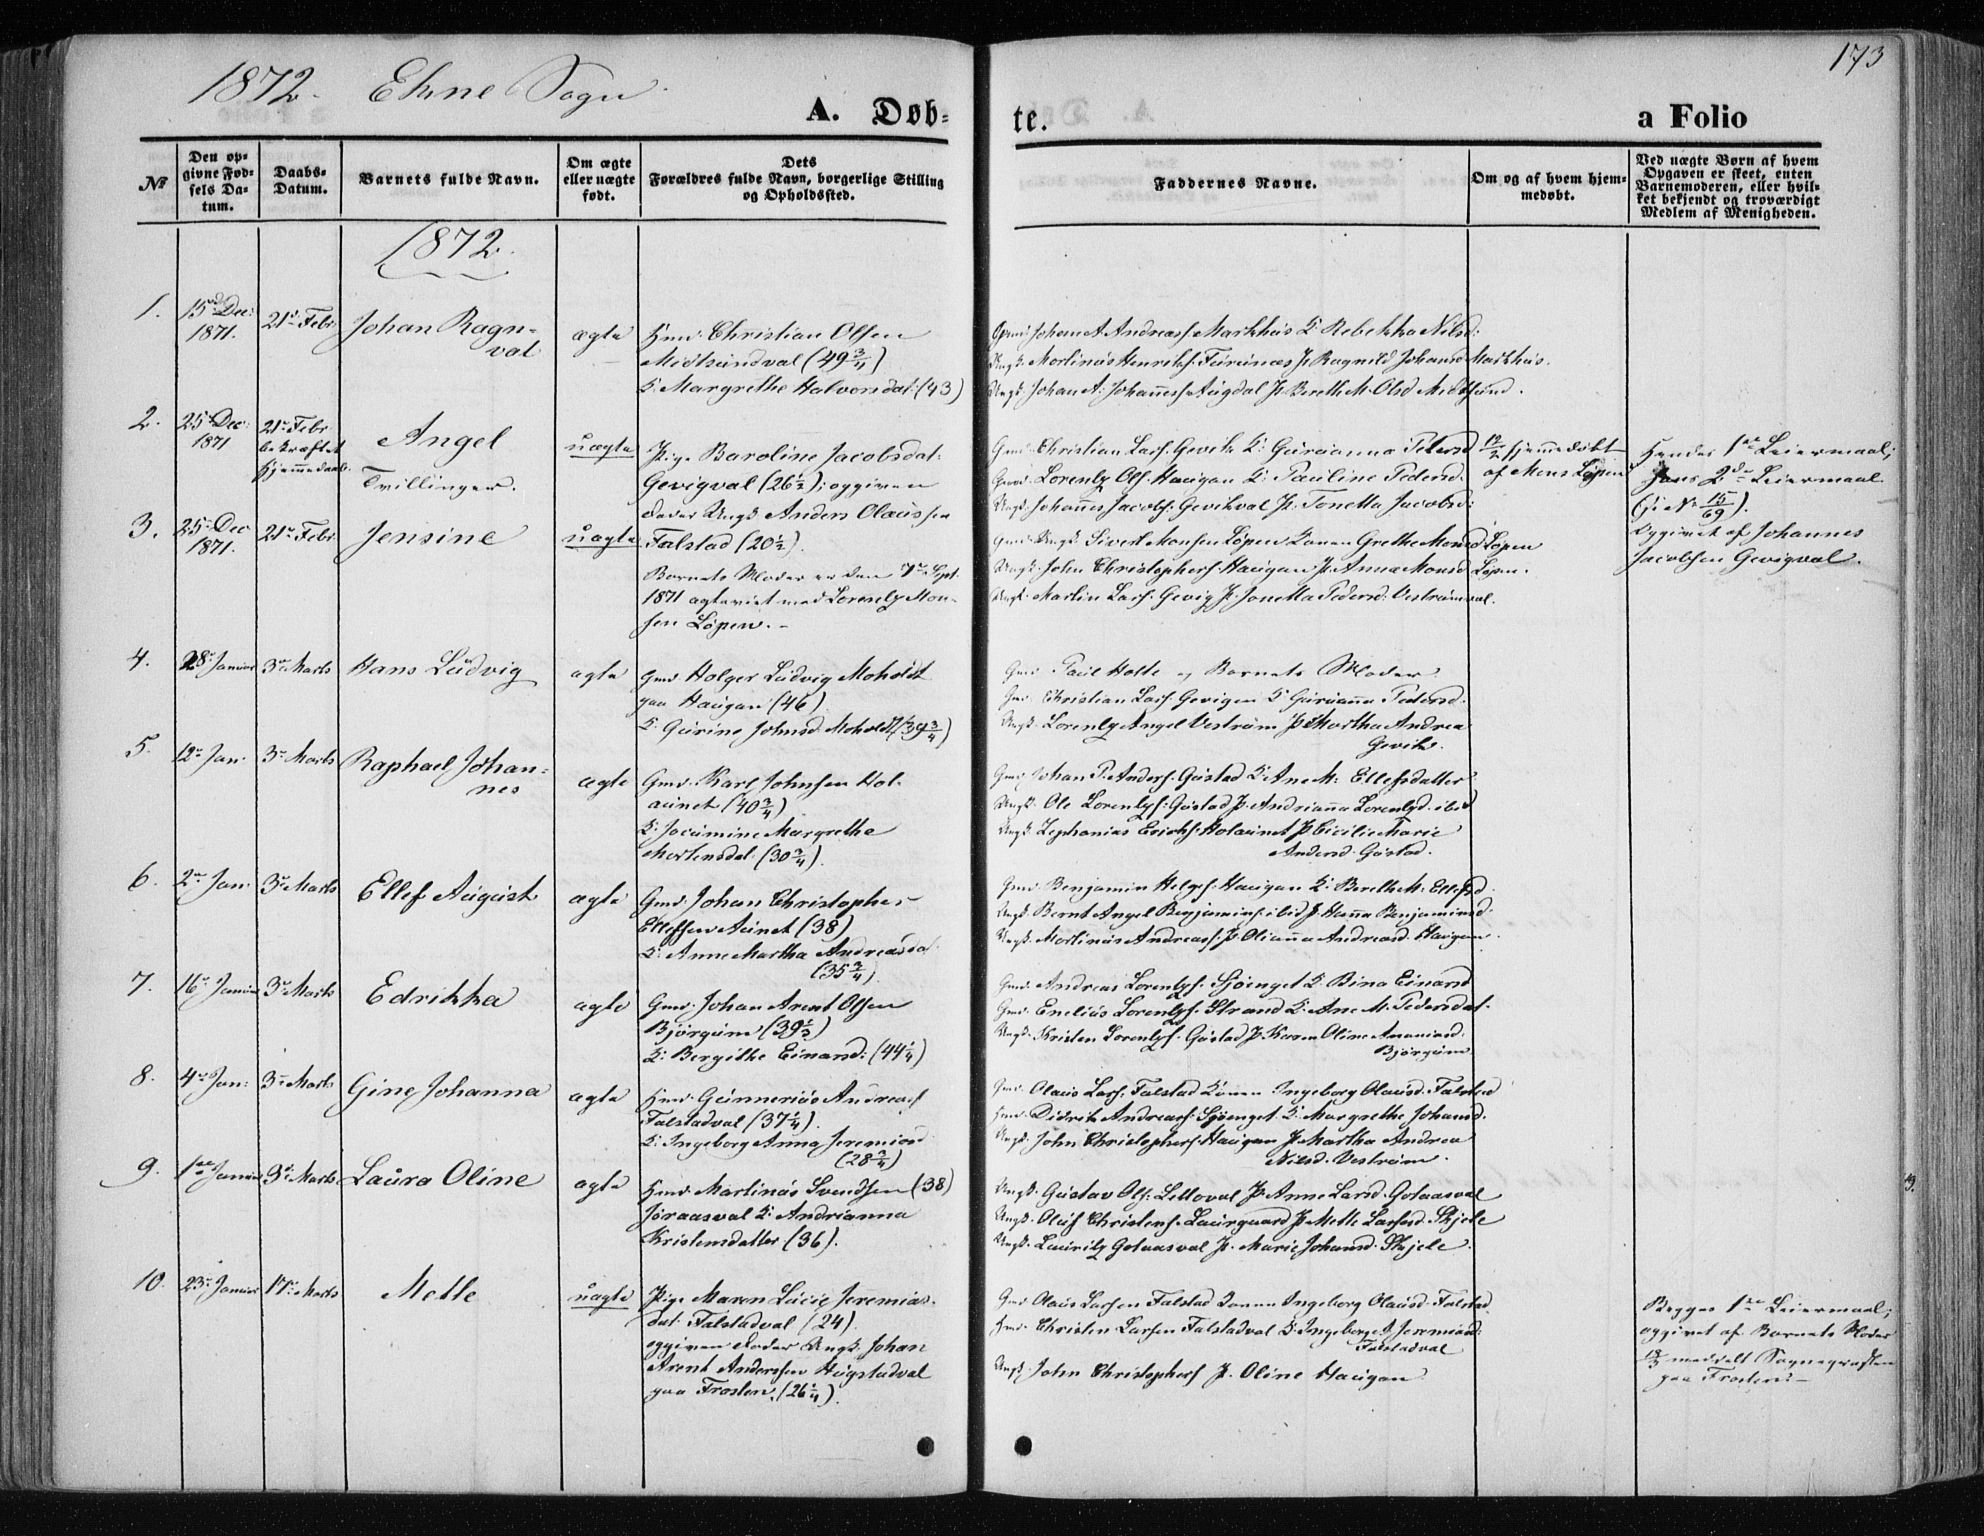 1872. Ekne Sogn
173
A. Døb-
te.
a Folio
No
Den op-
givne Fød-
sels Da-
tum.
Daabs-
Datum.
Barnets fulde Navn.
Om ægte
eller uægte
født.
Dets
Forældres fulde Navn, borgerlige Stilling
og Opholdssted.
Faddernes Navne.
Om og af hvem hjem-
medøbt.
Ved uægte Børn af hvem
Opgaven er skeet, enten
Barnemoderen, eller hvil-
ket bekjendt og troværdigt
Medlem af Menigheden.
1872.
1. 15de Dec: 1871. 21de Febr Johan Ragn-
val
ægte
Hmd. Christian Olsen
Midtsundval (49 3/4)
K. Margrethe Halvorsdat: (43)
Johan A. Andreass. Markhus K. Rebekka Nilsd:
Ungk. Martinus Henriks. P. Ragnild Johansd Markhus.
Ungk. Johan A. Johanness. Augdal P. Berethe M. Olsd Midtsund.
2. 25de Dec: 1871 21de Febr
bekræftet
Hjemmedaab.
Angel
Tvillinger.
uægte
Pige Baroline Jacobsdat:
Gevigval (26 1/2); opgiven
Fader Ungk Anders Olaussen
Falstad (20 1/2).
Gmd. Christian Lars. Gevik K. Gurianna Pedersd
Gmd. Lorentz Ols. Haugan K. Pauline Pedersd.
Ungk. Johannes Jacobs. Gevikval P. Tonetta Jacobsd:
12/2 hjemmedøbt
af Mons Løpen
Hendes 1ste Leiermaal;
hans 2det Leiermaal
(s: No 15/69).
Opgivet af Johannes
Jacobsen Gevigval.
3. 25de Dec 1871. 21de Febr. Jensine
uægte
Barnets Moder er den 7de Sept.
1871 ægteviet med Lorentz Mon-
sen Løpen.
Ungk. Sivert Monsen Løpen Konen Grethe Monsd Løpen
Ungk. John Christophers. Haugan P. Anna Monsd Løpen.
Ungk. Martin Lars. Gevig P. Jonetta Pedersd: Vestrumval.
4. 28de Januar 3de Marts Hans Ludvig
ægte
Gmd Holger Ludvig Moholdt
paa Haugan (46)
K. Gurine Johnsd. Moholdt (39 3/4)
Gmd. Paul Holte og Barnets Moder
Gmd. Christian Lars. Gevigen K. Gurianna Pedersd.
Ungk. Lorentz Angel Vestrum P. Martha Andrea
Gevik.
5. 12te Jan. 3de Marts Raphael Johan-
nes
ægte
Gmd. Karl Johnsen Hol-
aunet (40 3/4)
K. Jocumine Margrethe
Mortensdat. (30 3/4).
Gmd Johan P. Anders. Gustad K. Ane M. Ellefsdatter
Ungk. Ole Lorentzs. Gustad P. Andrianna Lorentzd. ibid
Ungk. Zephanias Erichs. Holaunet P. Cicilie Marie
Andersd. Gustad.
6. 2den Jan. 3de Marts Ellef August
ægte
Gmd. Johan Christopher
Ellefsen Aunet (38)
K. Anne Martha Andreasdat.
(35 3/4)
Gmd. Benjamin Helges. Haugan K. Berethe M. Ellefsd.
Ungk. Bernt Angel Benjamins. ibid P. Hanna Benjaminsd.
Ungk. Martinus Andreass. P. Olianna Andreasd. Haugan.
7. 16de Januar 3de Marts Edrikka
ægte
Gmd. Johan Arent Olsen
Bjørgum (39 1/2)
K. Bergithe Einarsd: (44 1/4)
Gmd. Andreas Lorentzs. Sjøenget K. Bina Einarsd
Gmd. Enelius Lorentzs. Strand K. Ane M. Pedersdat.
Ungk. Kristen Lorentzs. Gustad P. Karen Oline Ananiasd.
Bjørgum
8. 4de Jan: 3de Marts Gine Johanna
ægte
Hmd. Gunnerius Andreass
Falstadval (37 1/4).
K. Ingeborg Anna Jeremiasd.
(28 3/4)
Gmd. Olaus Lars. Falstad Konen Ingeborg Olausd. Falstad
Hmd. Didrik Andreass. Sjøenget K. Margrethe Johansd.
Ungk. John Christophers. Haugan P. Martha Andrea
Nilsd. Vestrum.
9. 1ste Januar 3de Marts Laura Oline
ægte
Hmd. Martinus Svendsen (38)
Joraasval K. Andrianna
Kristensdatter (36).
Ungk. Gustav Ols. Lelloval P. Anne Larsd. Golaasval
Ungk. Oluf Christens. Laurgaard P. Mette Larsd. Skjele
Ungk. Lauritz Golaasval P. Marie Johansd. Skjele.
10. 23de Januar 17de Marts Mette
uægte
Pige Maren Lucie Jeremias-
dat. Falstadval (24).
opgiven Fader Ungk. Johan
Arent Andersen Hogstadval
paa Frosten. (26 1/4).
Gmd Olaus Larsen Falstad Konen Ingeborg Olausd. Falstad
Hmd. Christen Larsen Falstadval K. Ingeborg A Jeremiasd:
Falstadval
Ungk. John Christophers P. Oline Haugan
Begges 1ste Leiermaal;
opgivet af Barnets Moder
18/3 meddelt Sognepræsten
paa Frosten.